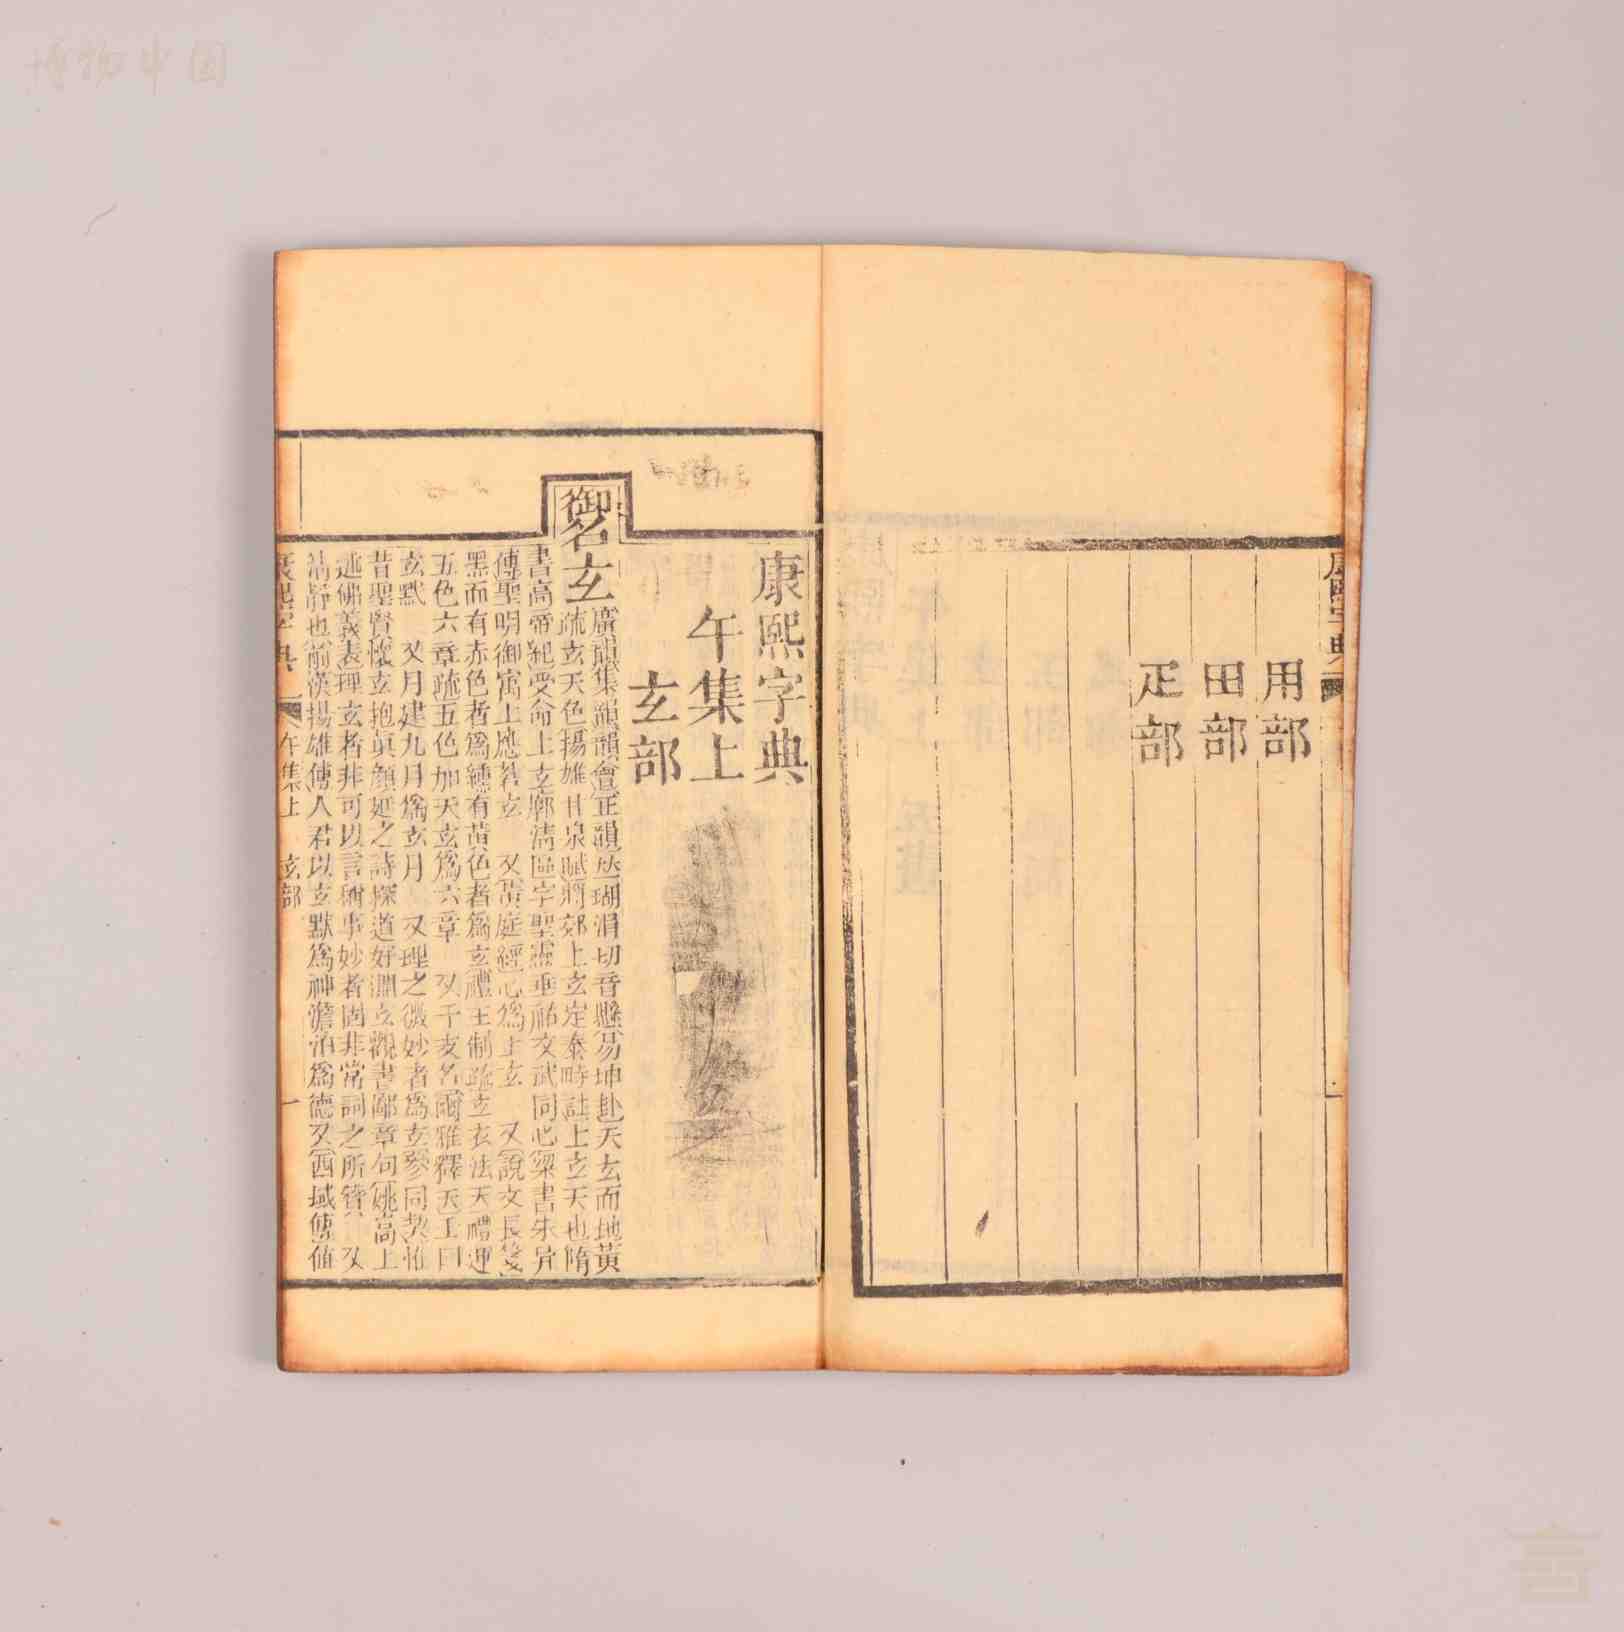 博物中国
康熙字典
用部
田部
疋部
康熙字典
午集上
玄部
御名
玄
廣韻集韻韻會正韻𠀤瑚涓切音懸易坤卦天玄而地黃
疏玄天色揚雄甘泉賦將郊上玄定泰畤註上玄天也隋
書高帝紀受命上玄廓淸區宇聖靈垂祐文武同心梁書朱异
傳聖明御寓上應蒼玄 又黃庭經心爲上玄 又說文長箋
黑而有赤色者爲纁有黃色者爲玄禮王制疏玄衣法天禮運
五色六章疏五色加天玄爲六章 又干支名爾雅釋天壬曰
玄黓 又月建九月爲玄月 又理之微妙者爲玄參同契惟
昔聖賢懷玄抱眞顏延之詩探道好淵玄觀書鄙章句姚高上
逃佛義表理玄者非可以言稱事妙者固非常詞之所贊 又
淸靜也前漢揚雄傳人君以玄默爲神澹泊爲德又西域傳值
康熙字典 午集上 玄部 一